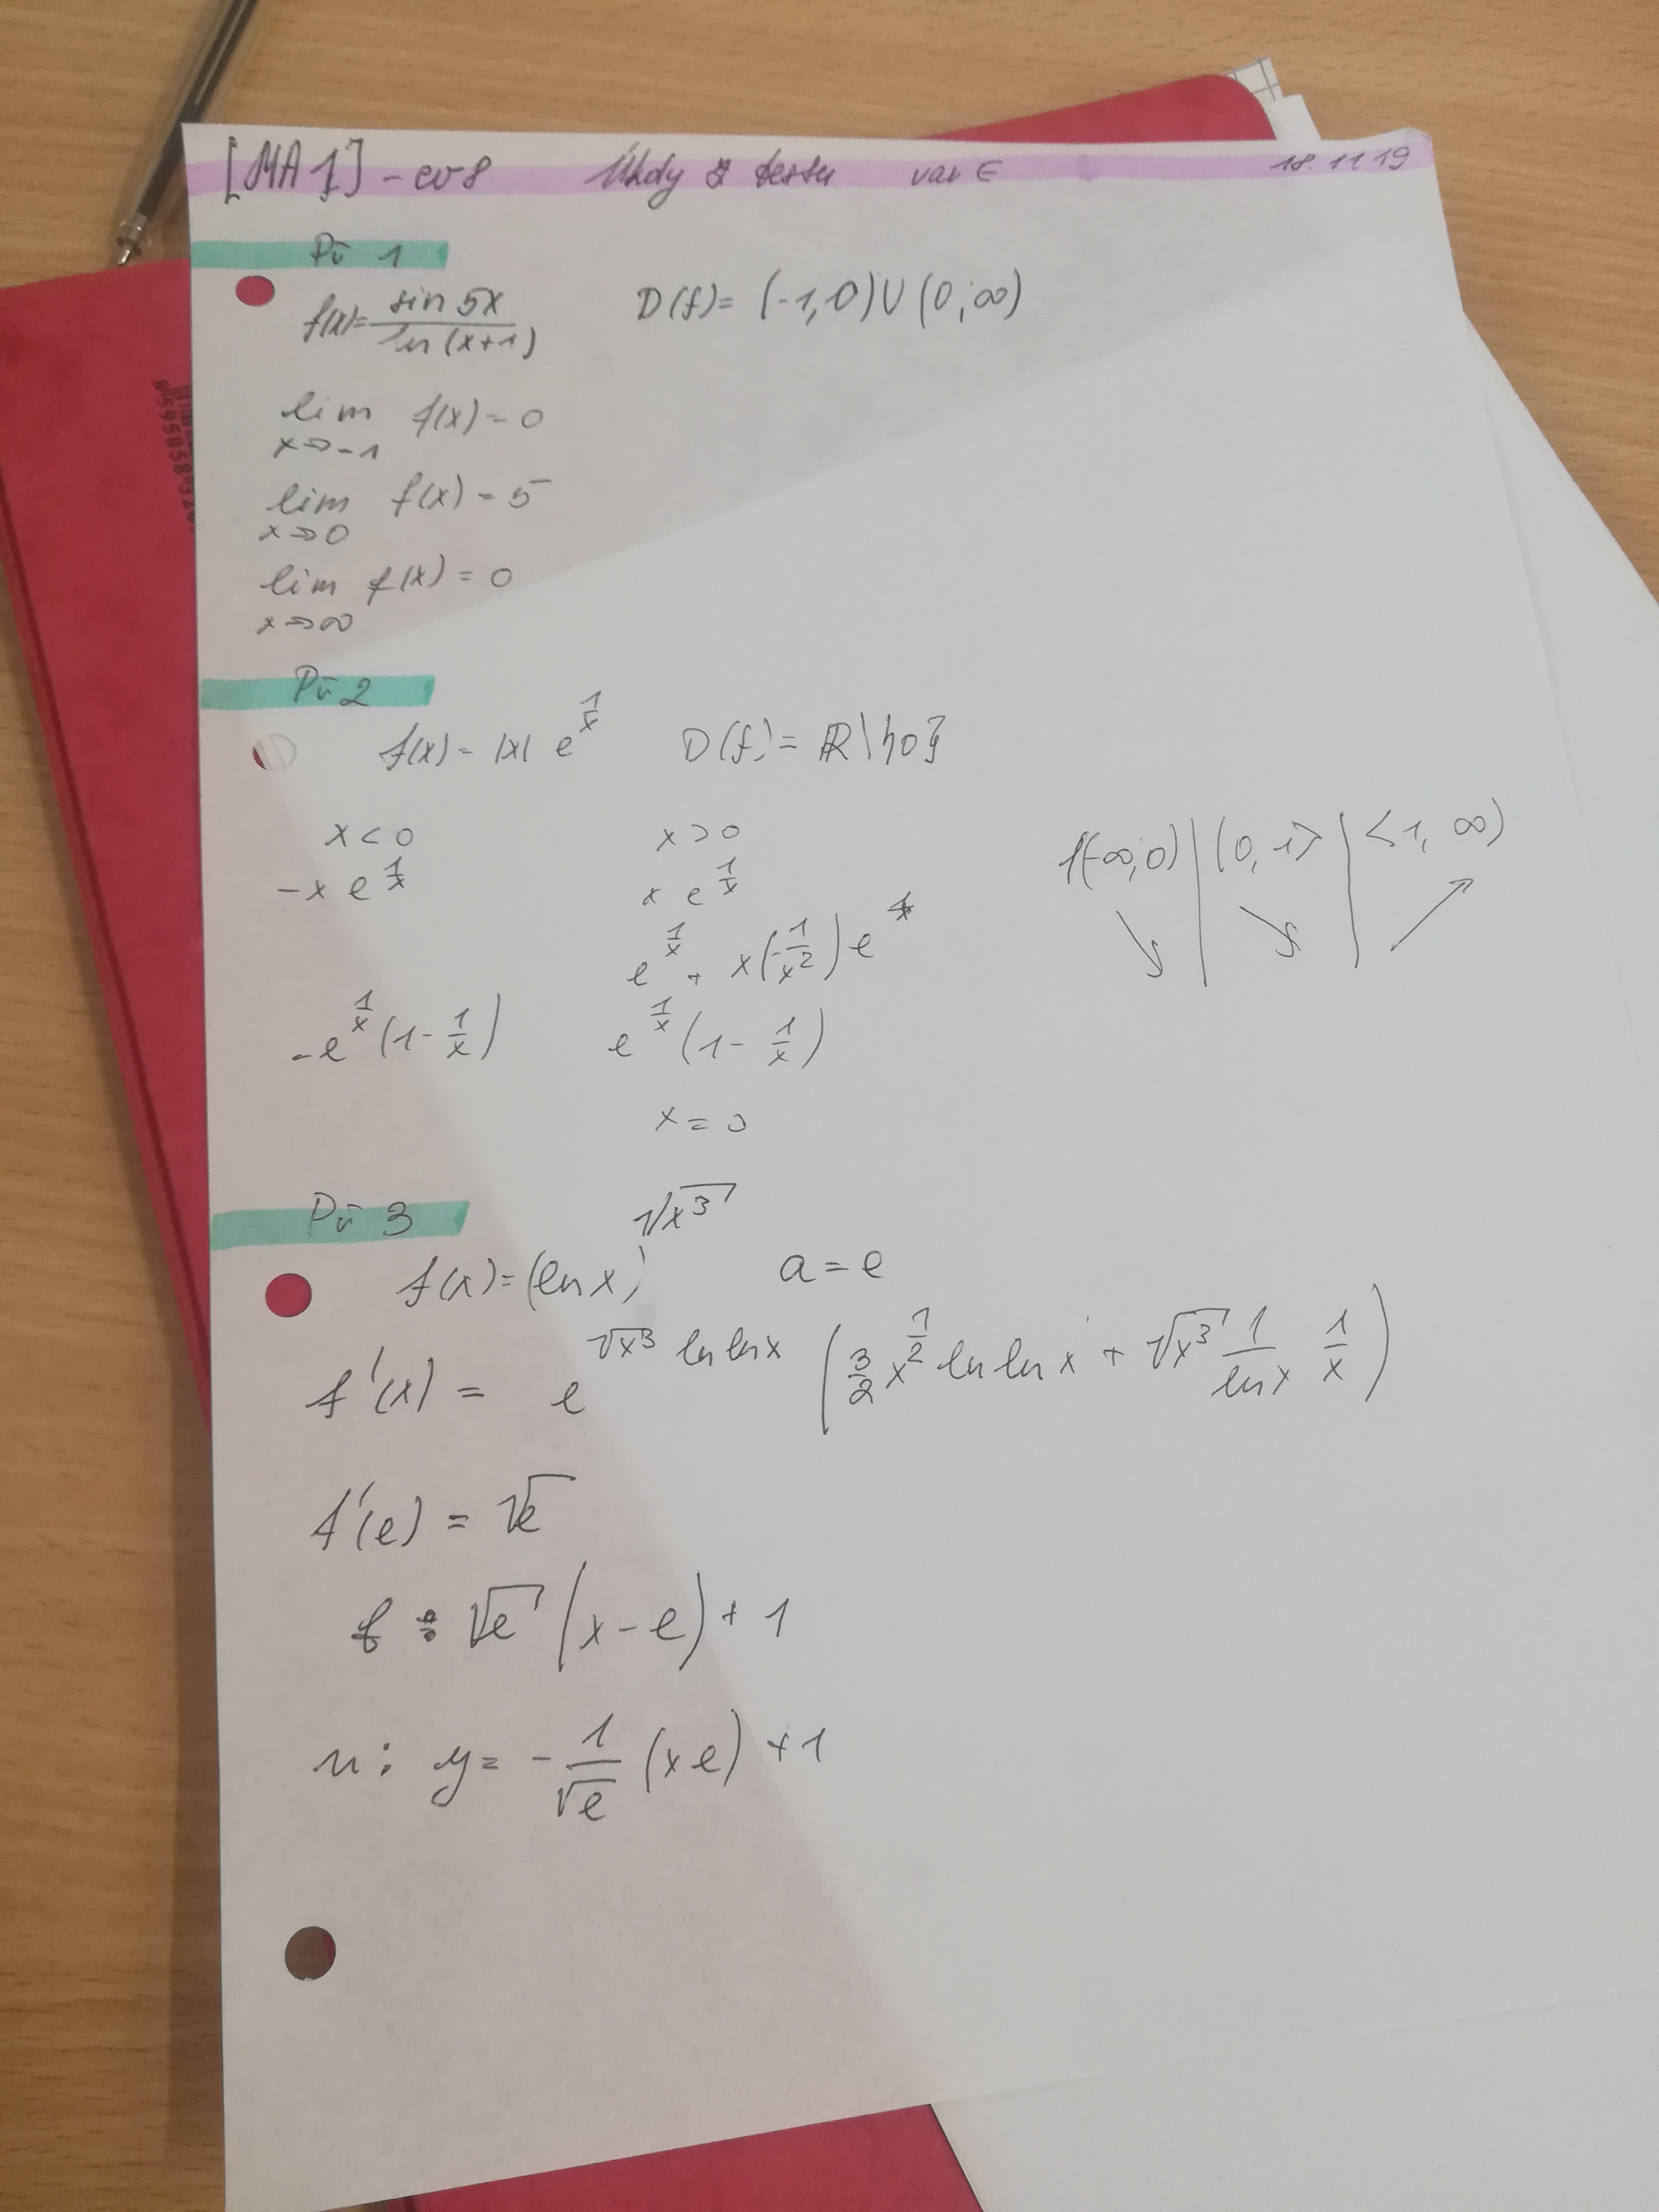 [MA1] - cv 8 Úkoly z testu var E 18.11.19
Př 1
f(x)= sin 5x / ln (x+1) D(f)= (-1,0)∪(0;∞)
lim x→-1 f(x)=0
lim x→0 f(x)=5
lim x→∞ f(x)=0
Př 2
f(x)= |x| e^(1/x) D(f)= ℝ\{0}
x<0 x>0 (-∞,0) | (0,1> | <1,∞)
-x e^(1/x) x e^(1/x) ↘ | ↘ | ↗
e^(1/x) + x(-1/x²) e
-e^(1/x) (1-1/x) e^(1/x) (1-1/x)
x=0
Př 3
f(x)=(ln x)^√x³ a=e
f'(x) = e^(√x³ ln ln x) (3/2 x^(1/2) ln ln x + √x³ 1/ln x 1/x)
f'(e) = √e
t : √e (x-e)+1
n: y= -1/√e (x e)+1